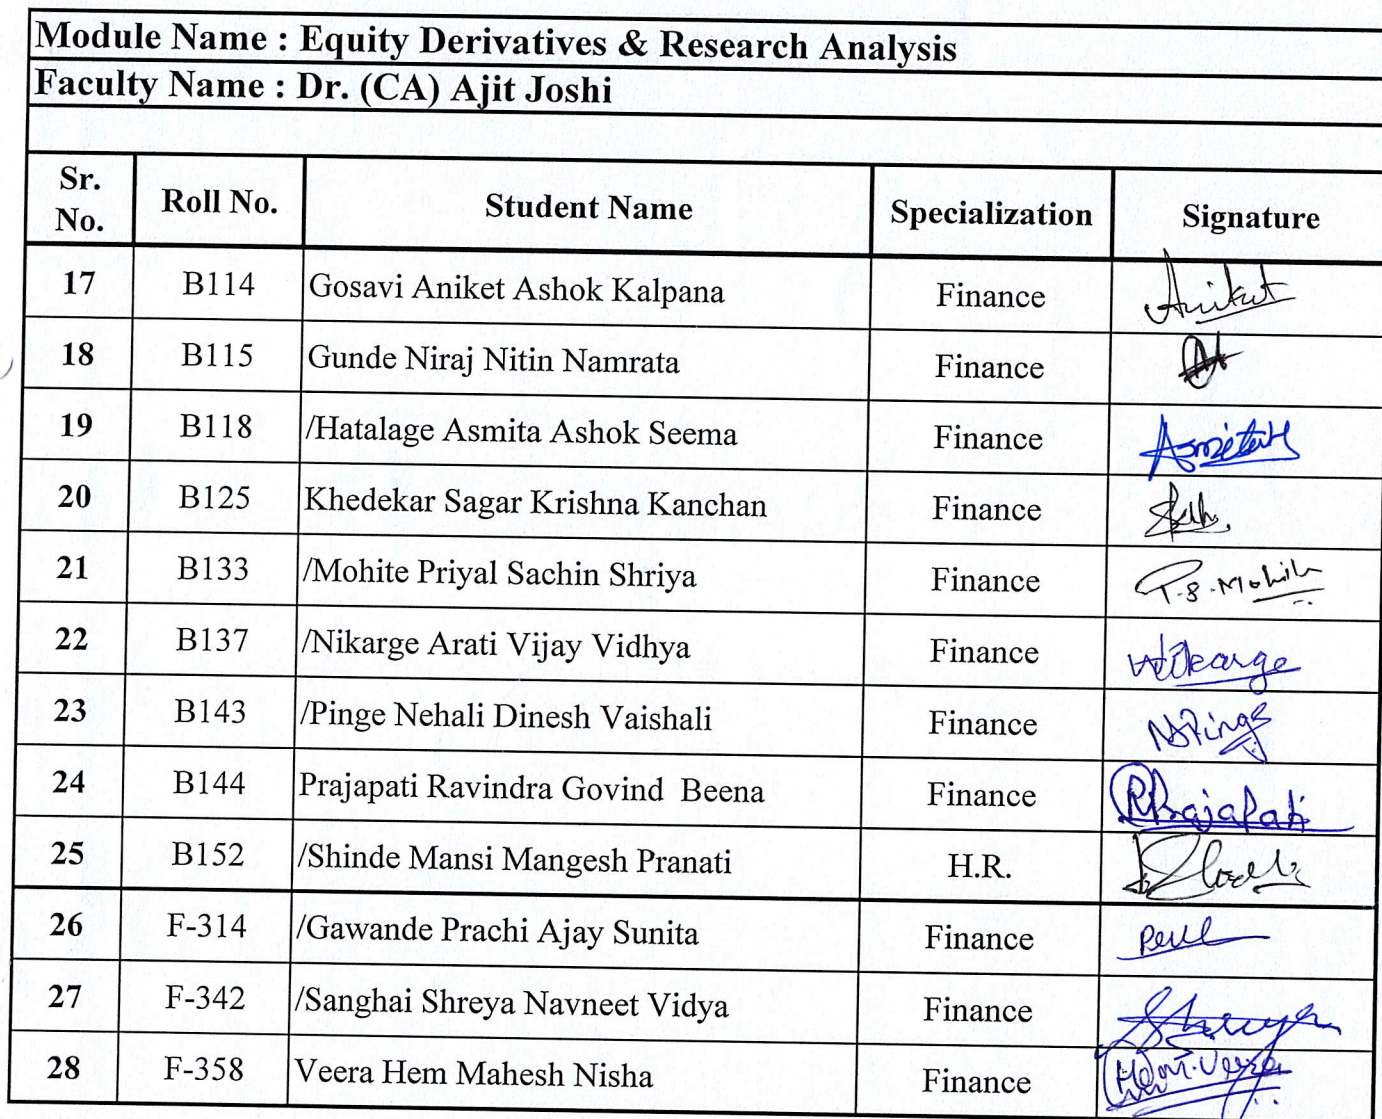 Module Name : Equity Derivatives & Research Analysis
Faculty Name : Dr. (CA) Ajit Joshi
Sr. No. Roll No. Student Name Specialization Signature
17 B114 Gosavi Aniket Ashok Kalpana Finance Aniket
18 B115 Gunde Niraj Nitin Namrata Finance
19 B118 /Hatalage Asmita Ashok Seema Finance AsmitaH
20 B125 Khedekar Sagar Krishna Kanchan Finance
21 B133 /Mohite Priyal Sachin Shriya Finance P.S.Mohite
22 B137 /Nikarge Arati Vijay Vidhya Finance Nikarge
23 B143 /Pinge Nehali Dinesh Vaishali Finance NPinge
24 B144 Prajapati Ravindra Govind Beena Finance RPrajapati
25 B152 /Shinde Mansi Mangesh Pranati H.R.
26 F-314 /Gawande Prachi Ajay Sunita Finance
27 F-342 /Sanghai Shreya Navneet Vidya Finance Shreya
28 F-358 Veera Hem Mahesh Nisha Finance Hem.Veera